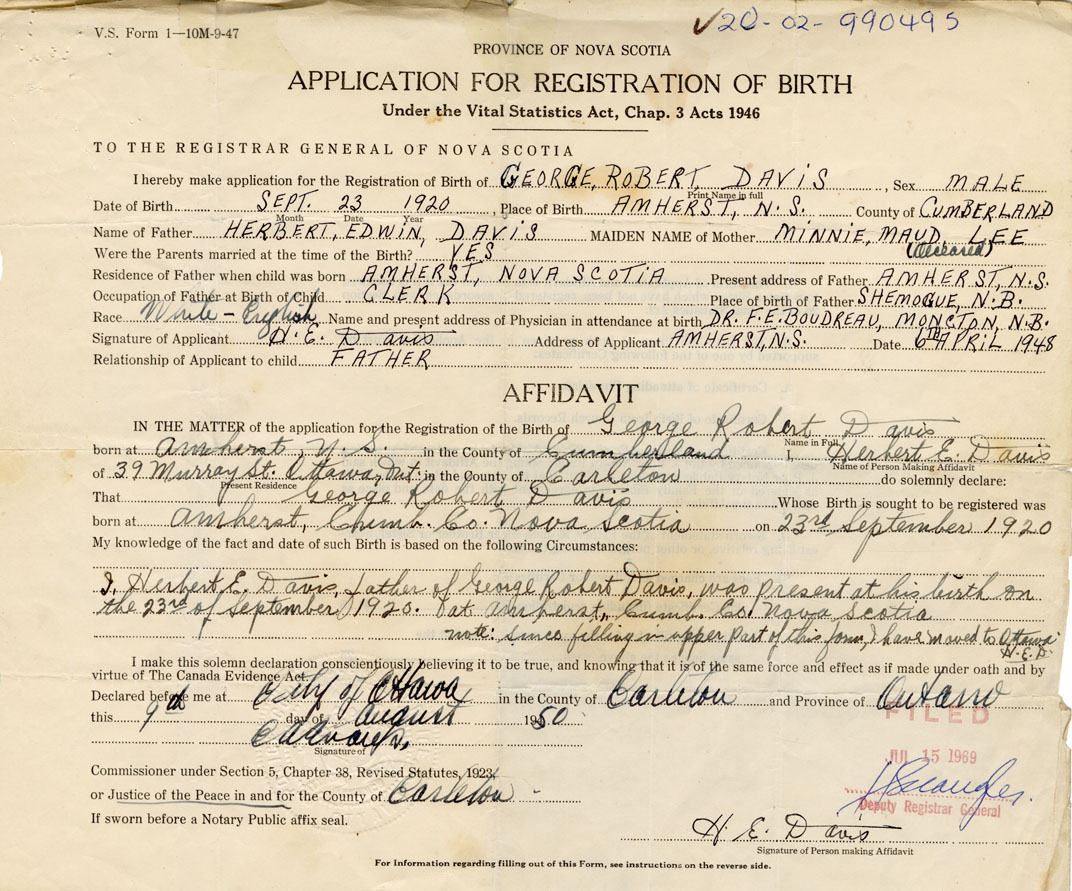 V.S. Form 1—10M-9-47
✓20-02-990495
PROVINCE OF NOVA SCOTIA
APPLICATION FOR REGISTRATION OF BIRTH
Under the Vital Statistics Act, Chap. 3 Acts 1946
TO THE REGISTRAR GENERAL OF NOVA SCOTIA
I hereby make application for the Registration of Birth of GEORGE, ROBERT, DAVIS, Sex MALE
Print Name in full
Date of Birth SEPT. 23 1920, Place of Birth AMHERST, N.S. County of CUMBERLAND
Month Date Year
Name of Father HERBERT, EDWIN, DAVIS MAIDEN NAME of Mother MINNIE, MAUD, LEE
(deceased)
Were the Parents married at the time of the Birth? YES
Residence of Father when child was born AMHERST, NOVA SCOTIA Present address of Father AMHERST, N.S.
Occupation of Father at Birth of Child CLERK Place of birth of Father SHEMOGUE, N.B.
Race White – English Name and present address of Physician in attendance at birth DR. F.E. BOUDREAU, MONCTON, N.B.
Signature of Applicant H. E. Davis Address of Applicant AMHERST, N.S. Date 6TH APRIL 1948
Relationship of Applicant to child FATHER
AFFIDAVIT
IN THE MATTER of the application for the Registration of the Birth of George Robert Davis
Name in Full
born at Amherst, N.S. in the County of Cumberland I, Herbert E. Davis
Name of Person Making Affidavit
of 39 Murray St. Ottawa, Ont. in the County of Carleton do solemnly declare:
Present Residence
That George Robert Davis Whose Birth is sought to be registered was
born at Amherst, Cumb. Co. Nova Scotia on 23rd September 1920
My knowledge of the fact and date of such Birth is based on the following Circumstances:
I, Herbert E. Davis, father of George Robert Davis, was present at his birth on
the 23rd of September, 1920. at Amherst, Cumb. Co. Nova Scotia
note: since filling in upper part of this form, I have moved to Ottawa
H.E.D.
I make this solemn declaration conscientiously believing it to be true, and knowing that it is of the same force and effect as if made under oath and by
virtue of The Canada Evidence Act.
Declared before me at City of Ottawa in the County of Carleton and Province of Ontario
this 9th day of August 1950
Signature of
FILED
JUL 15 1969
Deputy Registrar General
Commissioner under Section 5, Chapter 38, Revised Statutes, 1923,
or Justice of the Peace in and for the County of Carleton
If sworn before a Notary Public affix seal.
H. E. Davis
Signature of Person making Affidavit
For Information regarding filling out of this Form, see instructions on the reverse side.